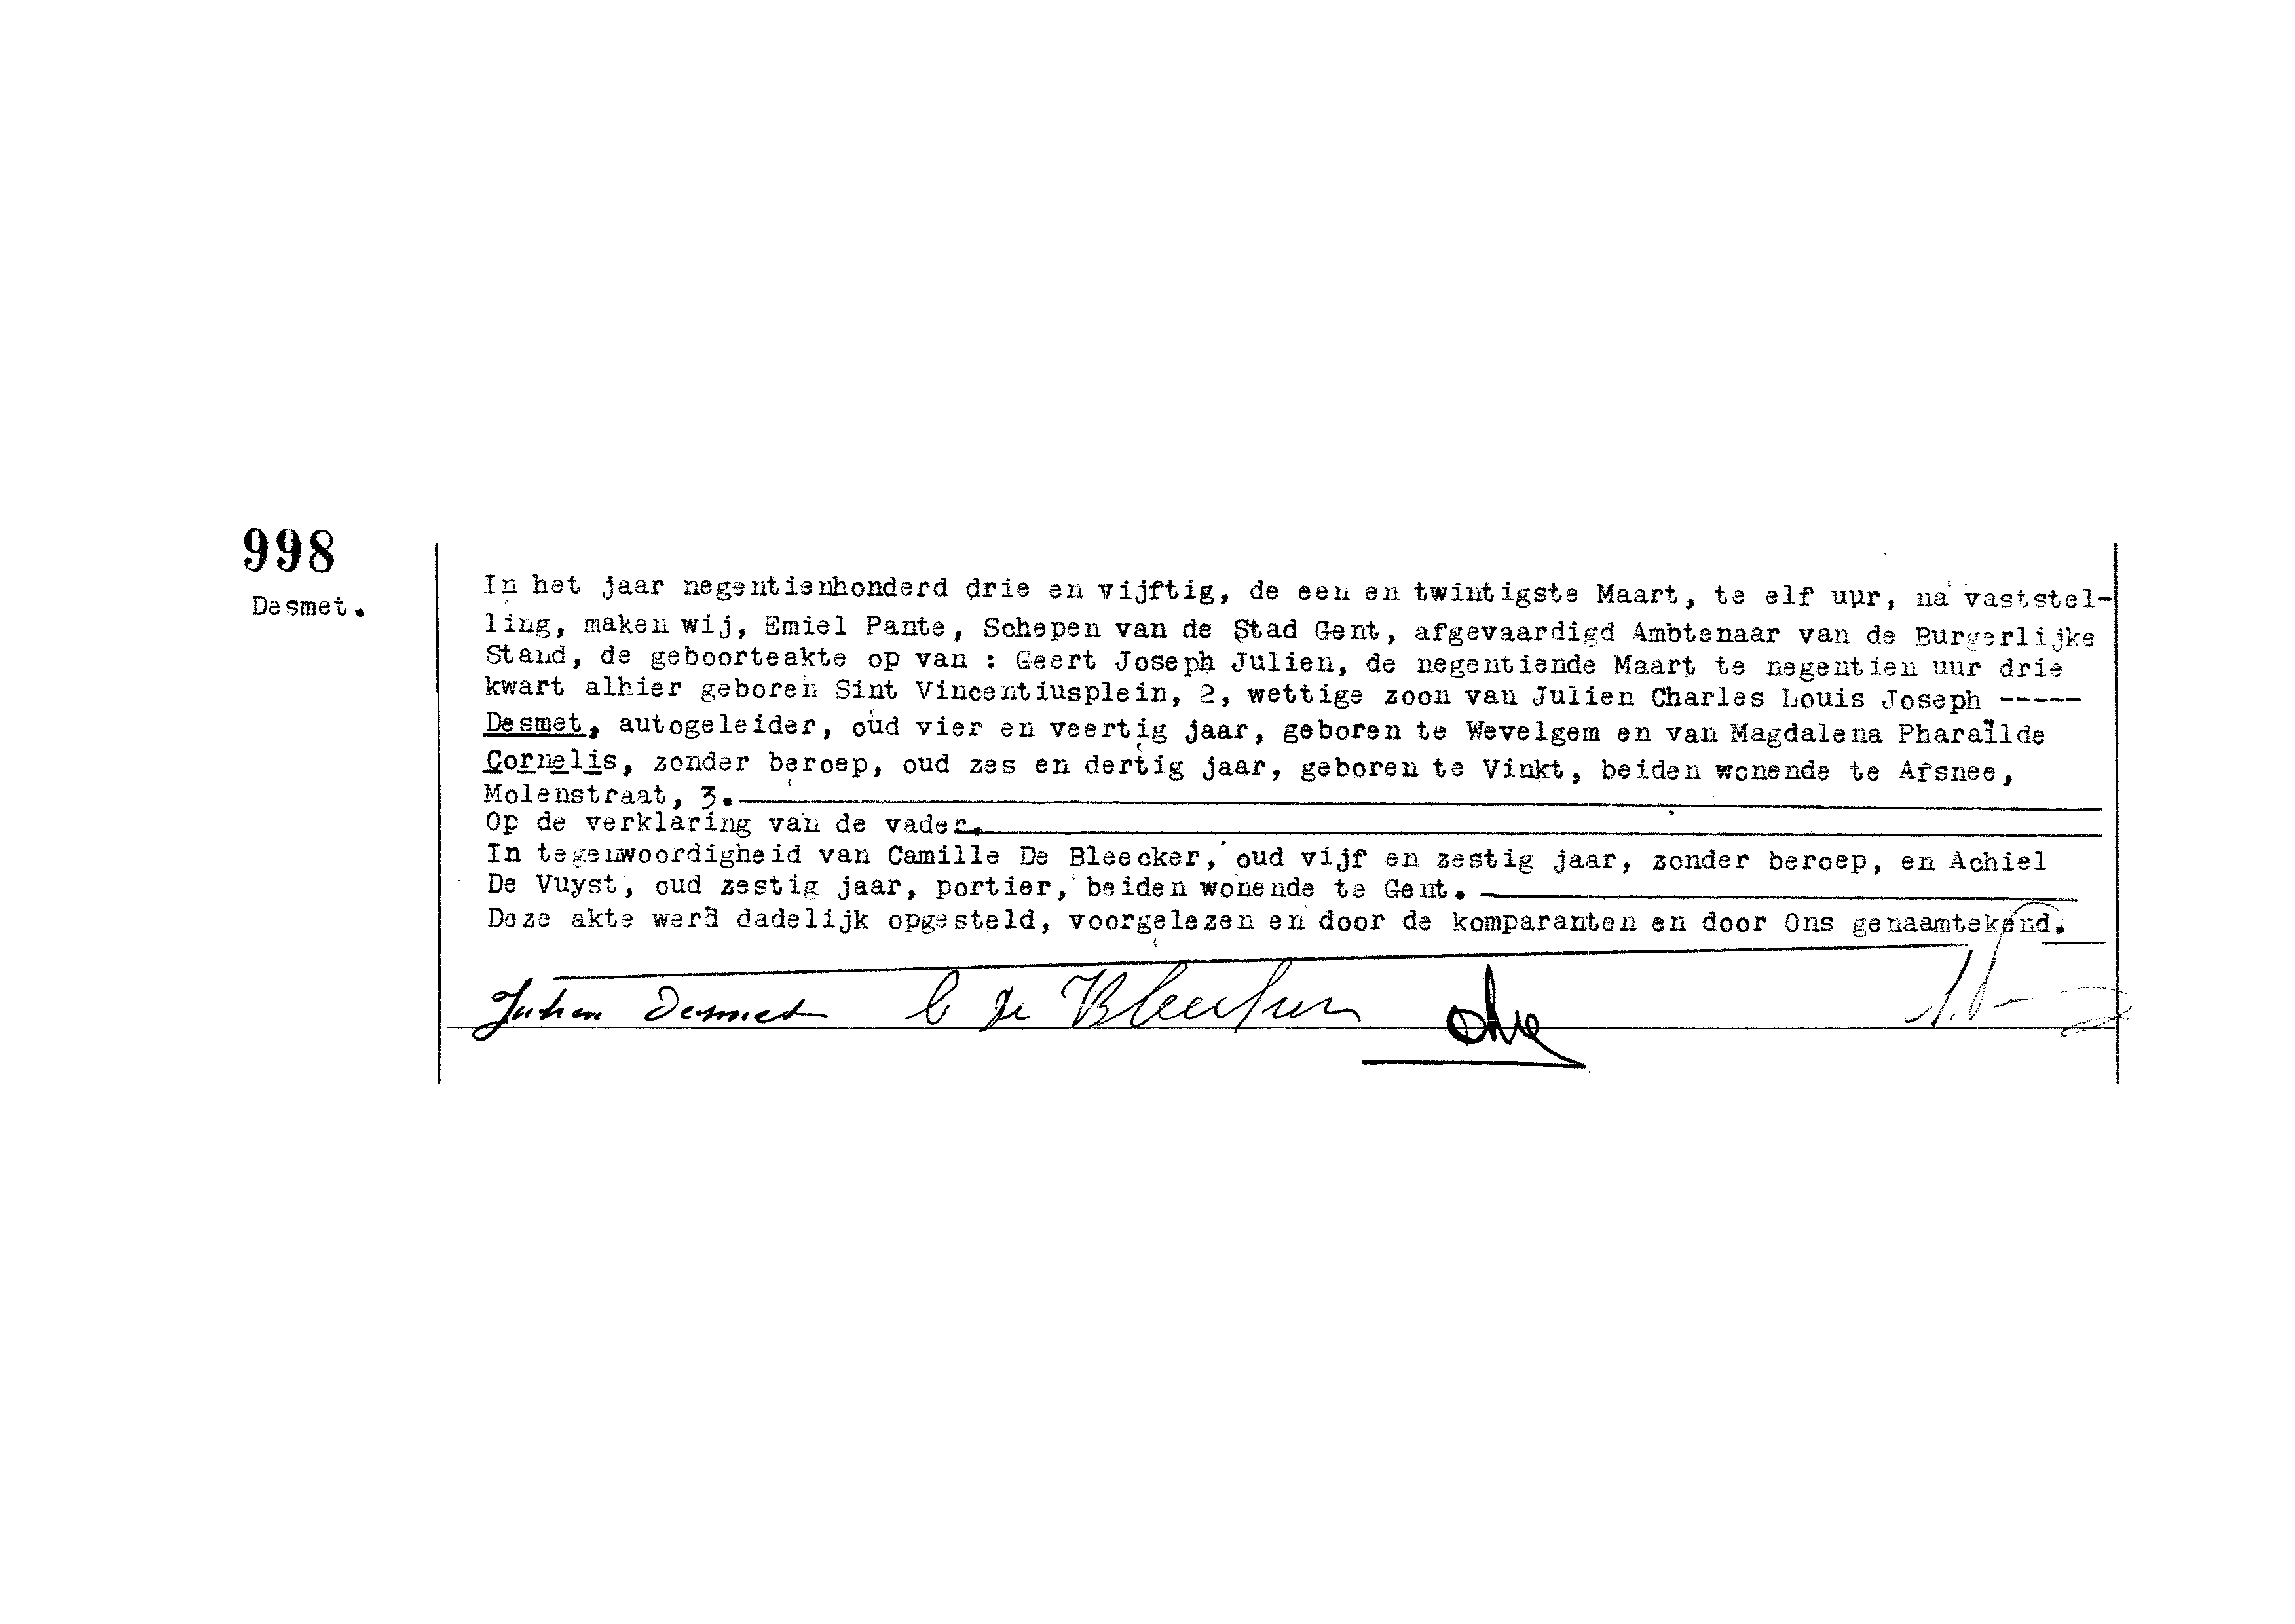 998
Desmet.
In het jaar negentienhonderd drie en vijftig, de een en twintigste Maart, te elf uur, na vaststel-
ling, maken wij, Emiel Pante, Schepen van de Stad Gent, afgevaardigd Ambtenaar van de Burgerlijke
Stand, de geboorteakte op van : Geert Joseph Julien, de negentiende Maart te negentien uur drie
kwart alhier geboren Sint Vincentiusplein, 2, wettige zoon van Julien Charles Louis Joseph -----
Desmet, autogeleider, oud vier en veertig jaar, geboren te Wevelgem en van Magdalena Pharaïlde
Cornelis, zonder beroep, oud zes en dertig jaar, geboren te Vinkt, beiden wonende te Afsnee,
Molenstraat, 3.
Op de verklaring van de vader.
In tegenwoordigheid van Camille De Bleecker, oud vijf en zestig jaar, zonder beroep, en Achiel
De Vuyst, oud zestig jaar, portier, beiden wonende te Gent.
Deze akte werd dadelijk opgesteld, voorgelezen en door de komparanten en door Ons genaamtekend.
Julien Desmet C De Bleecker